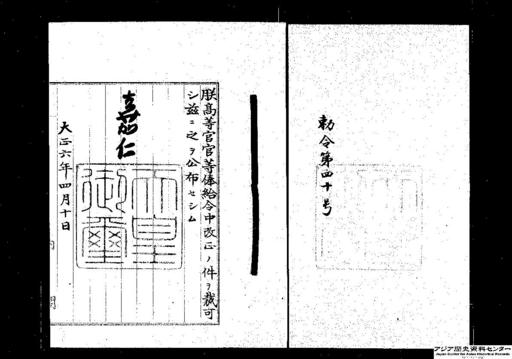 勅令第四十号
朕高等官官等俸給令中改正ノ件ヲ裁可
シ茲ニ之ヲ公布セシム
嘉仁
天皇御璽
大正六年四月十日
内閣
アジア歴史資料センター
Japan Center for Asian Historical Records